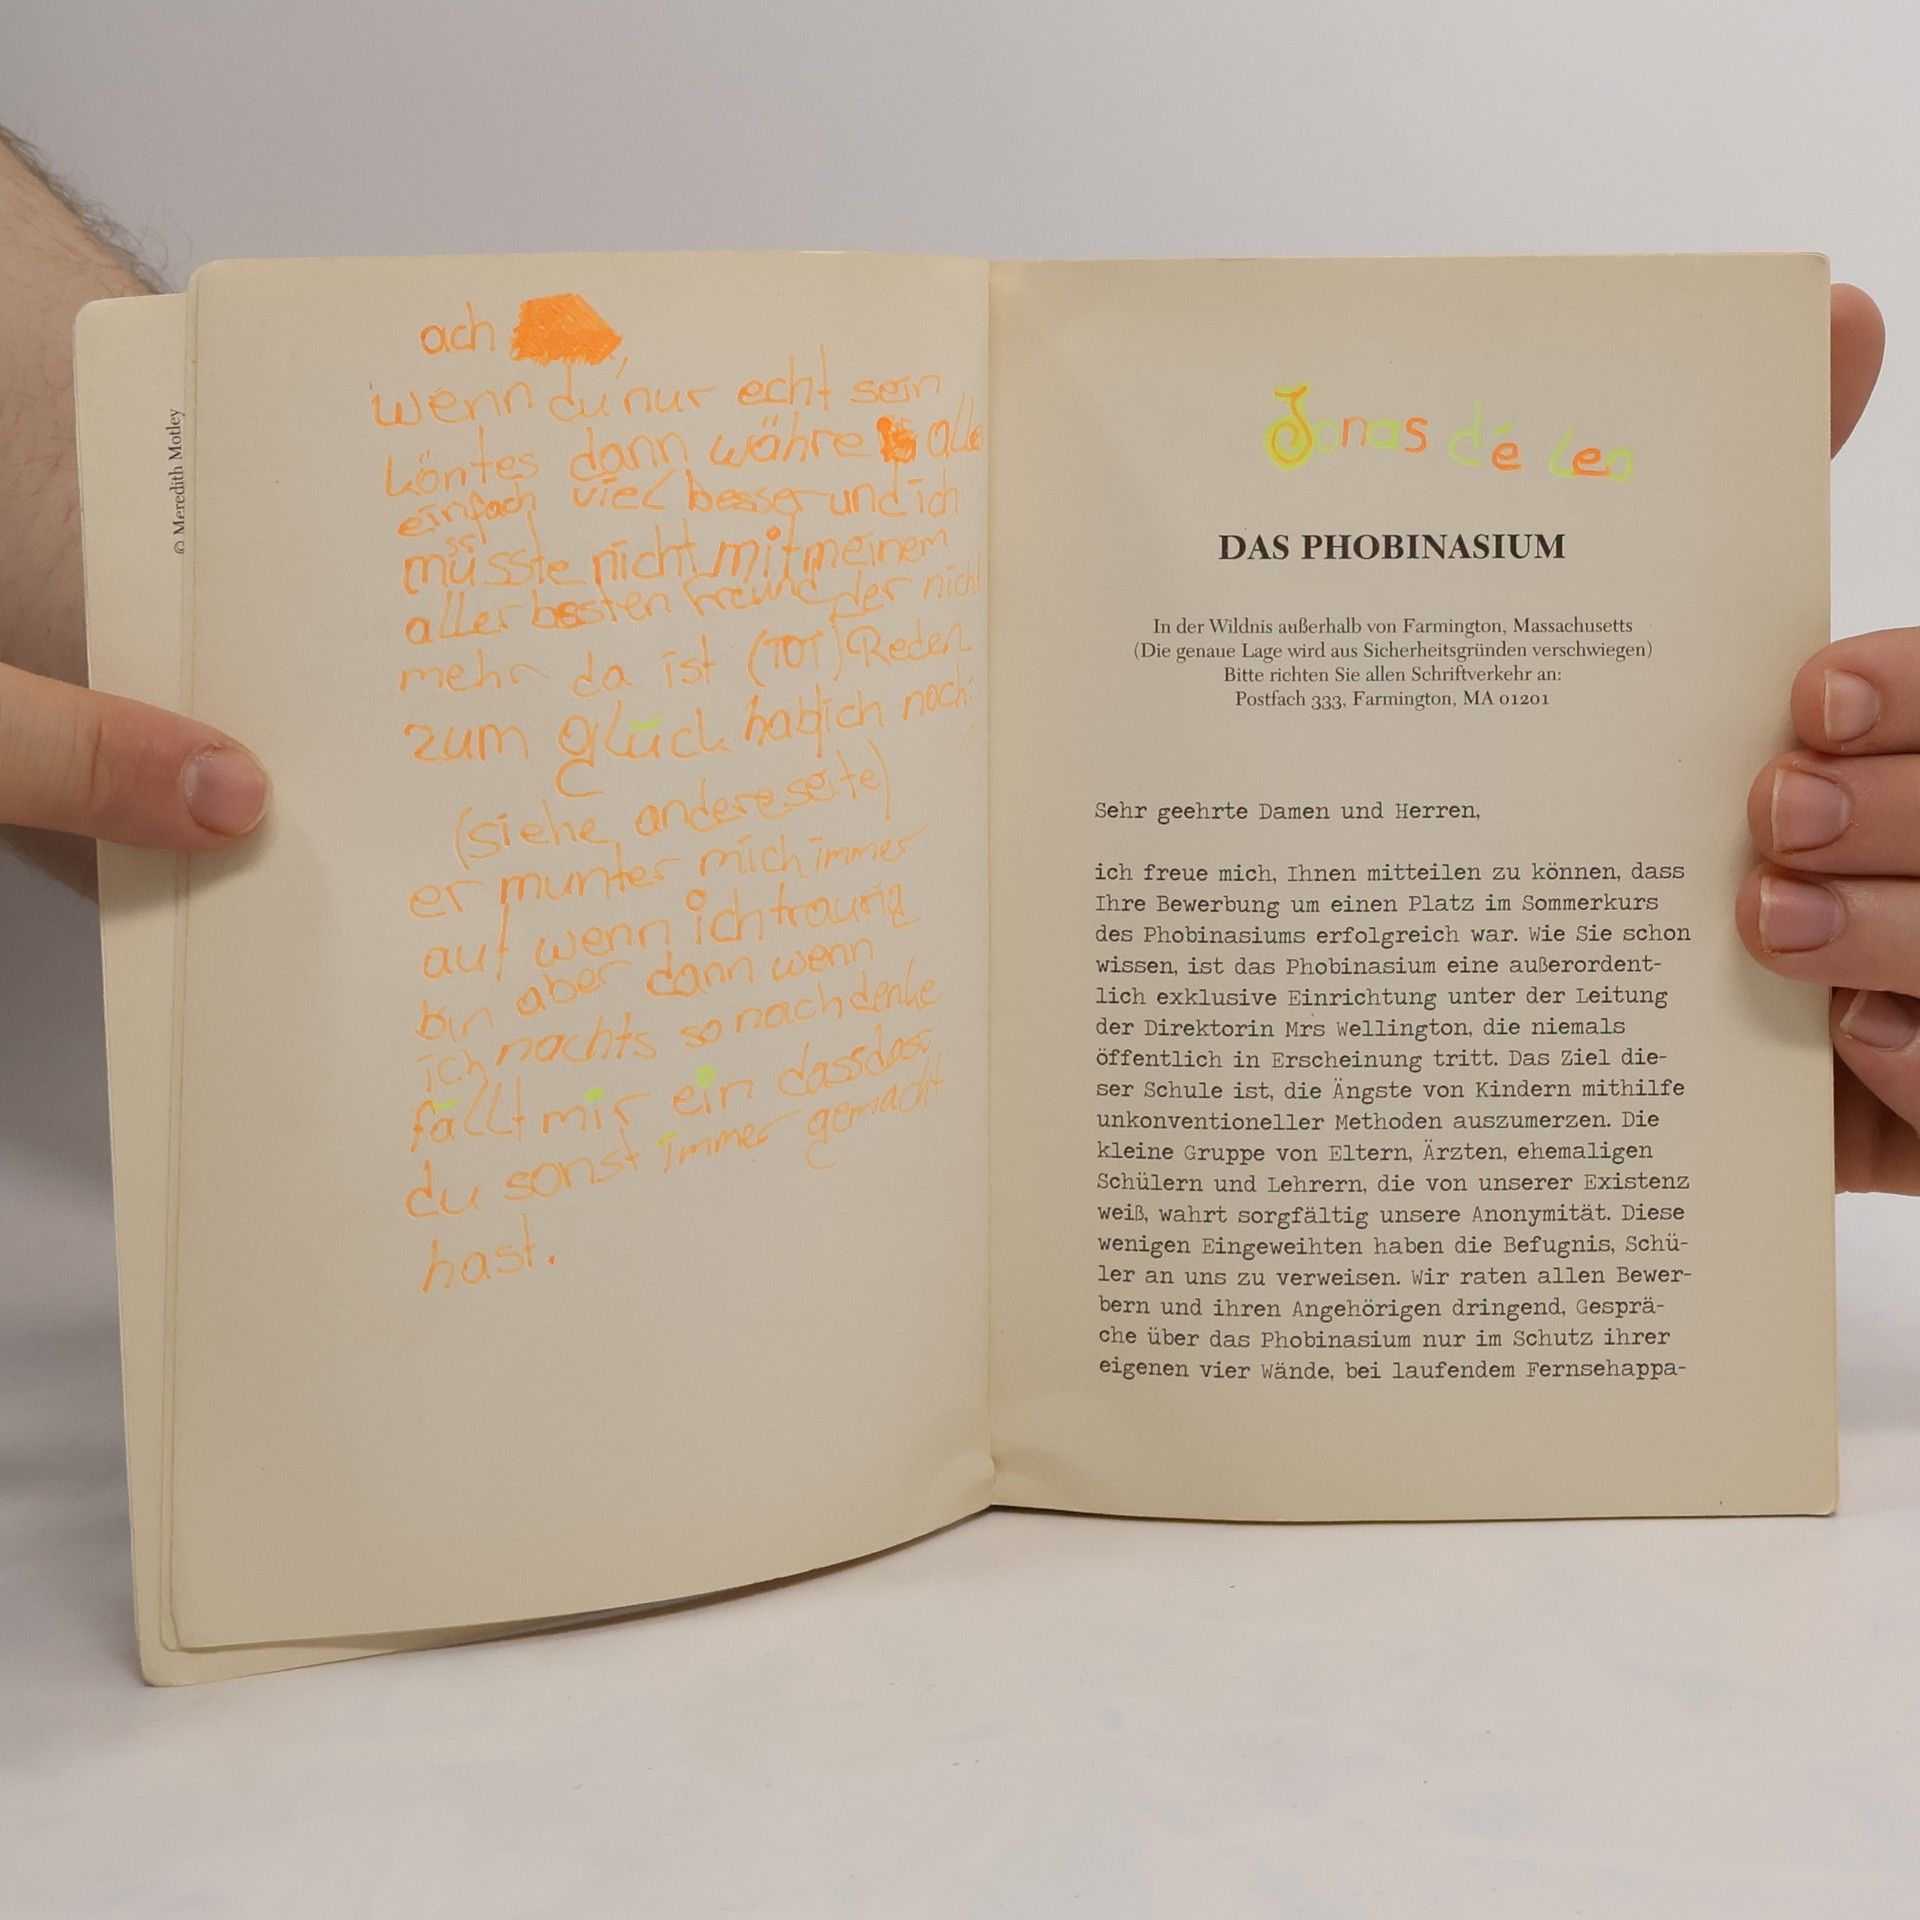 © Meredith Motley
ach
wenn du nur echt sein
köntes dann währe alle
einfach viel besser und ich
müsste nicht mit meinem
aller besten Freund der nicht
mehr da ist (TOT) Reden.
zum glück hab ich noch:
(siehe andere seite)
er munter mich immer
auf wenn ich traurig
bin aber dann wenn
ich nachts so nachdenke
fällt mir ein dass das
du sonst immer gemacht
hast.
Jonas dé Leo
DAS PHOBINASIUM
In der Wildnis außerhalb von Farmington, Massachusetts
(Die genaue Lage wird aus Sicherheitsgründen verschwiegen)
Bitte richten Sie allen Schriftverkehr an:
Postfach 333, Farmington, MA 01201
Sehr geehrte Damen und Herren,
ich freue mich, Ihnen mitteilen zu können, dass
Ihre Bewerbung um einen Platz im Sommerkurs
des Phobinasiums erfolgreich war. Wie Sie schon
wissen, ist das Phobinasium eine außerordent-
lich exklusive Einrichtung unter der Leitung
der Direktorin Mrs Wellington, die niemals
öffentlich in Erscheinung tritt. Das Ziel die-
ser Schule ist, die Ängste von Kindern mithilfe
unkonventioneller Methoden auszumerzen. Die
kleine Gruppe von Eltern, Ärzten, ehemaligen
Schülern und Lehrern, die von unserer Existenz
weiß, wahrt sorgfältig unsere Anonymität. Diese
wenigen Eingeweihten haben die Befugnis, Schü-
ler an uns zu verweisen. Wir raten allen Bewer-
bern und ihren Angehörigen dringend, Gesprä-
che über das Phobinasium nur im Schutz ihrer
eigenen vier Wände, bei laufendem Fernsehappa-